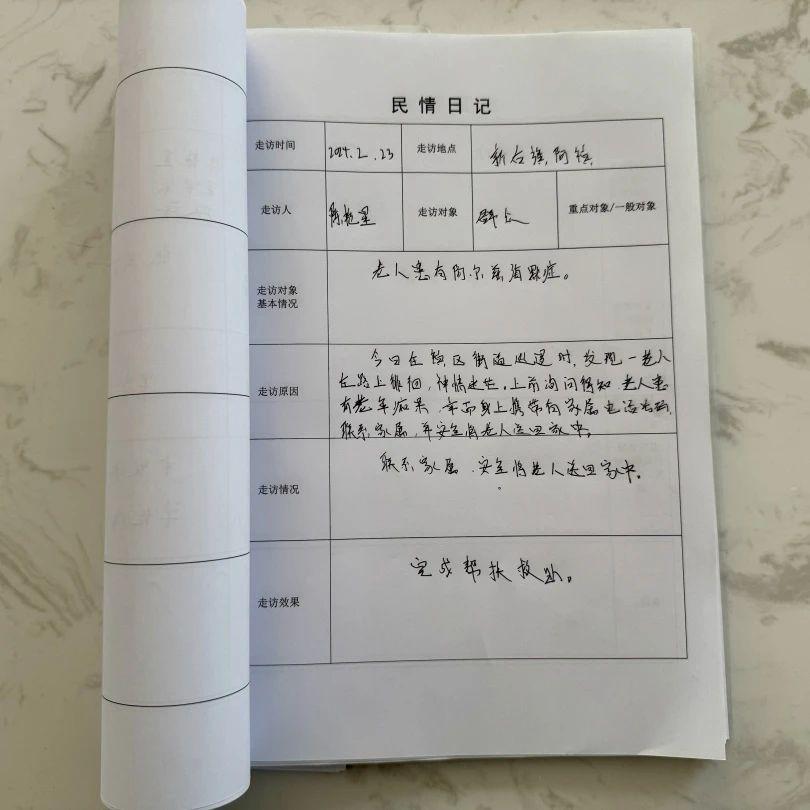 民情日记
走访时间 2024.2.23 走访地点
走访人 走访对象 群众 重点对象/一般对象
走访对象
基本情况
老人患有阿尔兹海默症。
走访原因
今日在 区街面巡逻时,发现一老人
在路上徘徊,神情迷茫。上前询问得知老人患
有老年痴呆,幸而身上携带有家属电话号码,
联系家属,并安全将老人送回家中。
走访情况
联系家属,安全将老人送回家中。
走访效果
完成帮扶救助。